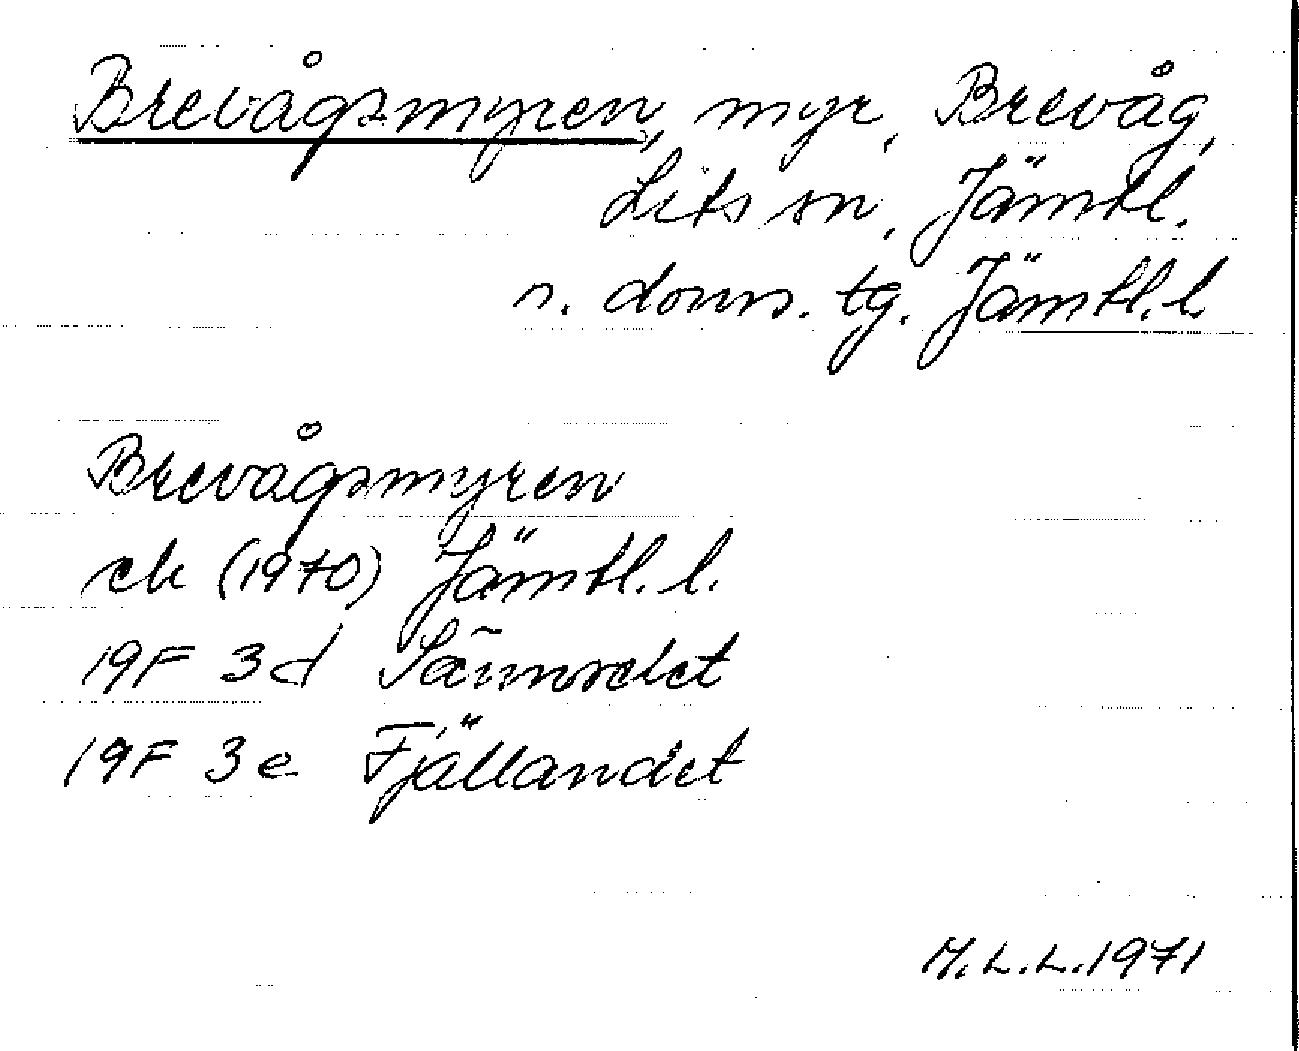 Brevågsmyren, myr, Brevåg,
Lits sn, Jämtl.
n. doms. tg. Jämtl. l.
Brevågsmyren
ek (1970) Jämtl. l.
19F 3d
19F 3e Fjällandet
M.L.L. 1971